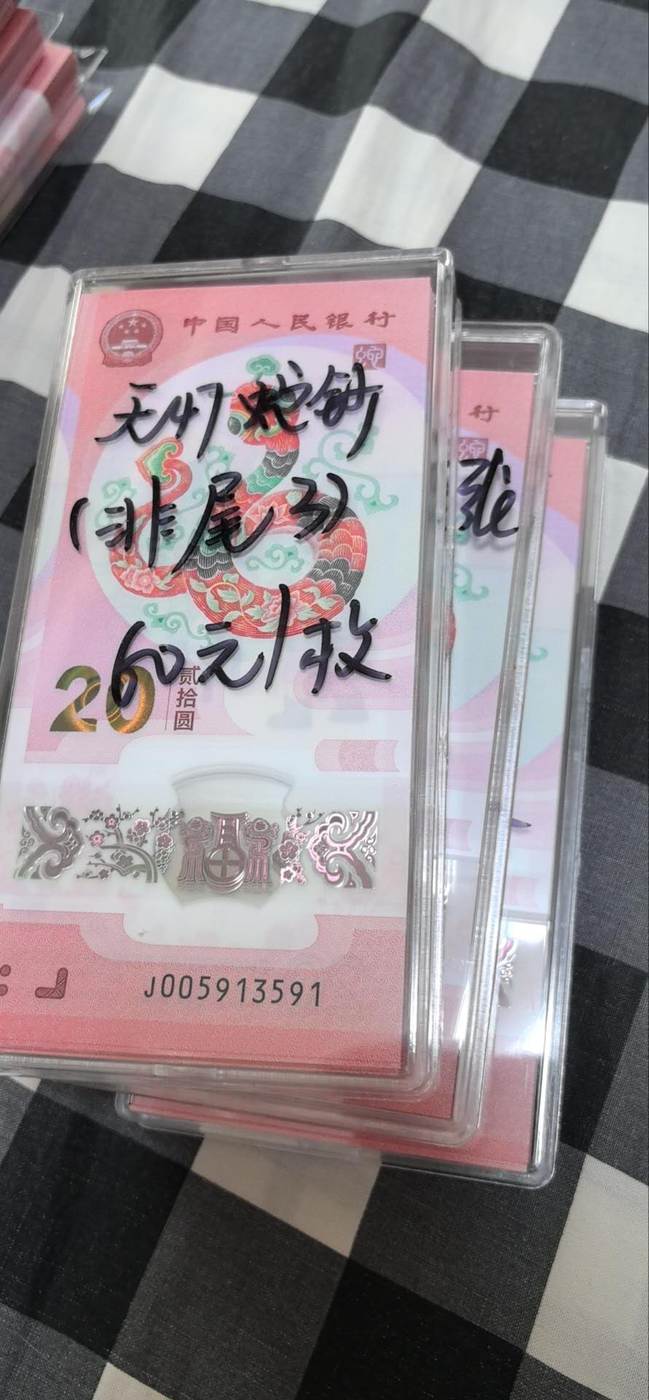 中国人民银行
无47蛇钞
(非尾3)
60元/枚
20
贰拾圆
J005913591
行